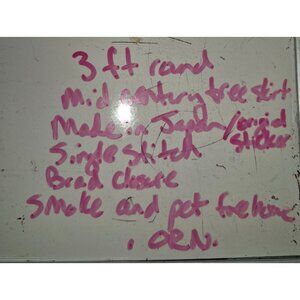 3 ft round
mid century tree skirt
Made in Japan/original sticker
Single stitch
Brad closure
Smoke and pet free home
. ORN.